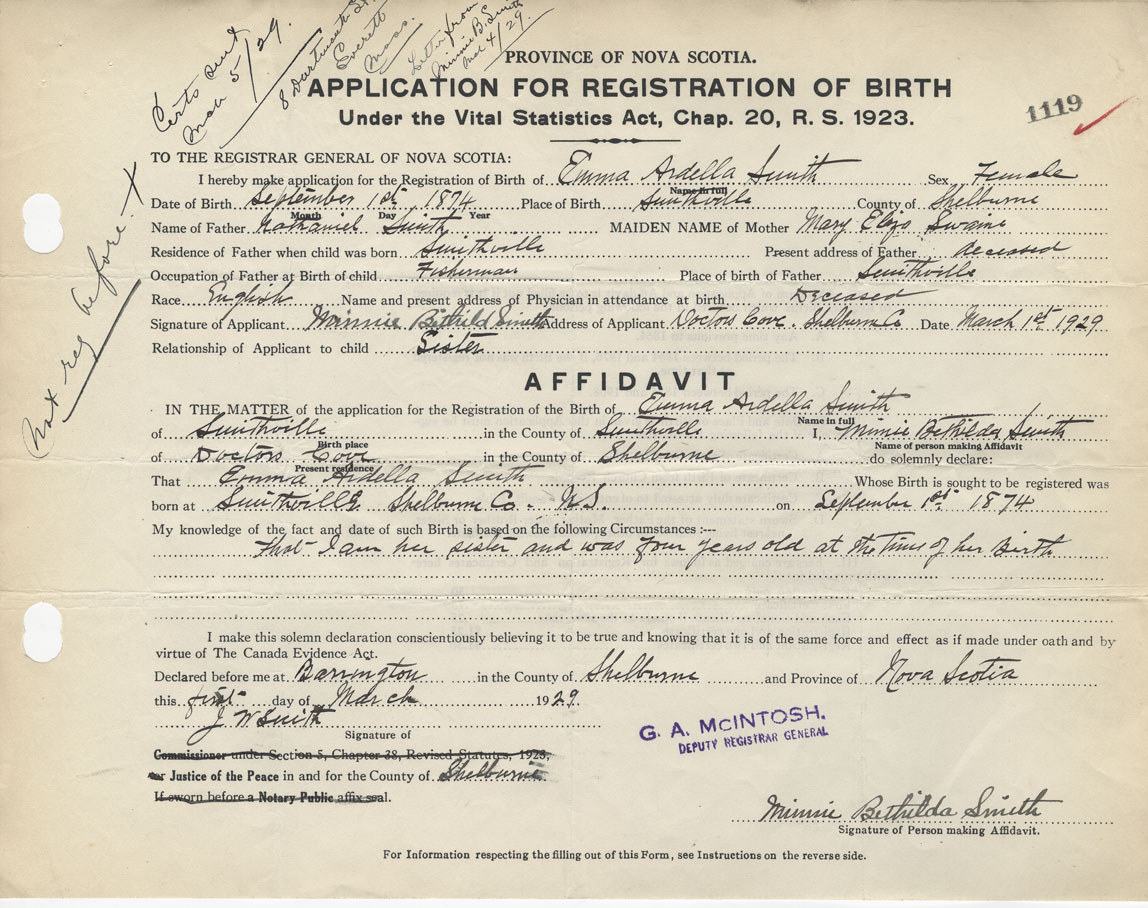 Certs sent
Mar 5/29.
8 Dartmouth St
Everett
Mass.
Letter from
Minnie B. Smith
Mar 4/29.
PROVINCE OF NOVA SCOTIA.
APPLICATION FOR REGISTRATION OF BIRTH
Under the Vital Statistics Act, Chap. 20, R. S. 1923.
1119
Not reg before X
TO THE REGISTRAR GENERAL OF NOVA SCOTIA:
I hereby make application for the Registration of Birth of Emma Ardella Smith Sex Female
Name in full
Date of Birth September 1st 1874 Place of Birth Smithville County of Shelburne
Month Day Year
Name of Father Nathaniel Smith MAIDEN NAME of Mother Mary Eliza Swaine
Residence of Father when child was born Smithville Present address of Father deceased
Occupation of Father at Birth of child Fisherman Place of birth of Father Smithville
Race English Name and present address of Physician in attendance at birth Deceased
Signature of Applicant Minnie Bethild Smith Address of Applicant Doctors Cove. Shelburn Co Date March 1st 1929
Relationship of Applicant to child Sister
AFFIDAVIT
IN THE MATTER of the application for the Registration of the Birth of Emma Ardella Smith
Name in full
of Smithville in the County of Smithville I, Minnie Bethilda Smith
Birth place Name of person making Affidavit
of Doctors Cove in the County of Shelburne do solemnly declare:
Present residence
That Emma Ardella Smith Whose Birth is sought to be registered was
born at Smithville Shelburne Co. N.S. on September 1st 1874
My knowledge of the fact and date of such Birth is based on the following Circumstances :---
That I am her sister and was four years old at the Time of her Birth
I make this solemn declaration conscientiously believing it to be true and knowing that it is of the same force and effect as if made under oath and by
virtue of The Canada Evidence Act.
Declared before me at Barrington in the County of Shelburne and Province of Nova Scotia
this first day of March 1929.
J W Smith
Signature of
G. A. McINTOSH.
DEPUTY REGISTRAR GENERAL
Commissioner under Section 5, Chapter 38, Revised Statutes, 1923,
or Justice of the Peace in and for the County of Shelburne
If sworn before a Notary Public affix seal.
Minnie Bethilda Smith
Signature of Person making Affidavit.
For Information respecting the filling out of this Form, see Instructions on the reverse side.